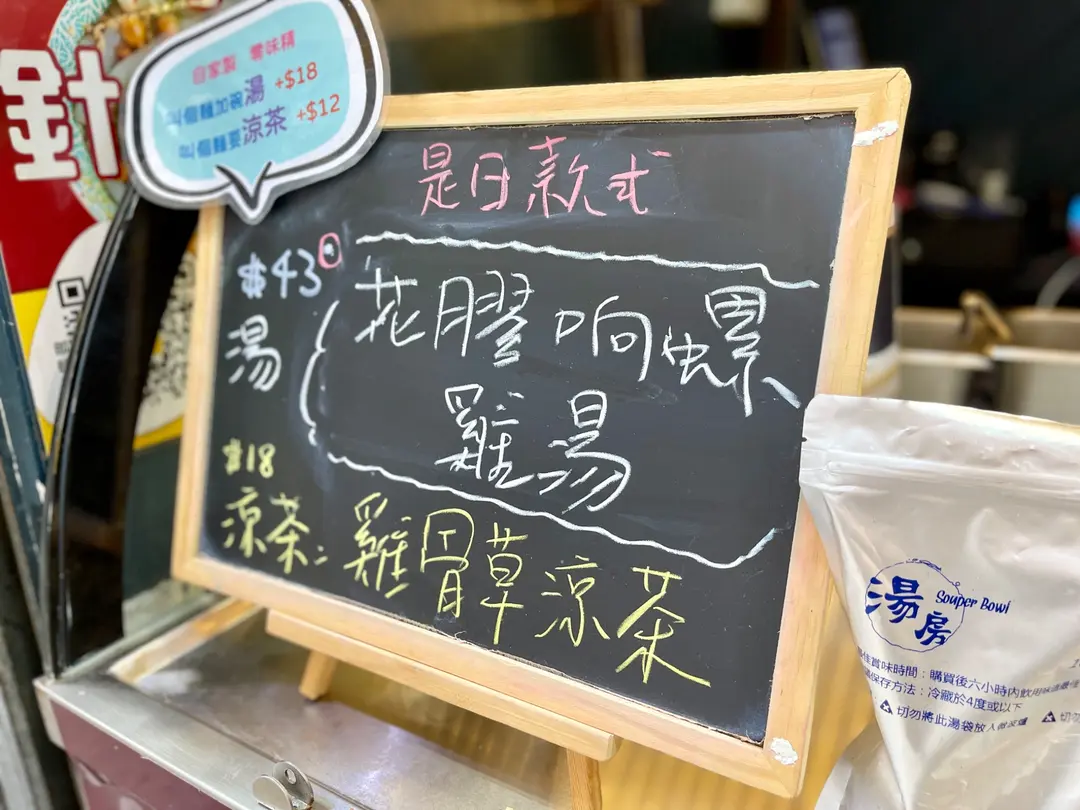 針
自家製 零味精
叫個麵加碗湯 +$18
叫個麵要涼茶 +$12
是日款式
$43
湯
花膠响螺
雞湯
$18
涼茶: 雞骨草涼茶
湯房
Souper Bowl
佳賞味時間:購買後六小時內飲用味道最佳
保存方法:冷藏於4度或以下
切勿將此湯袋放入微波爐
切勿